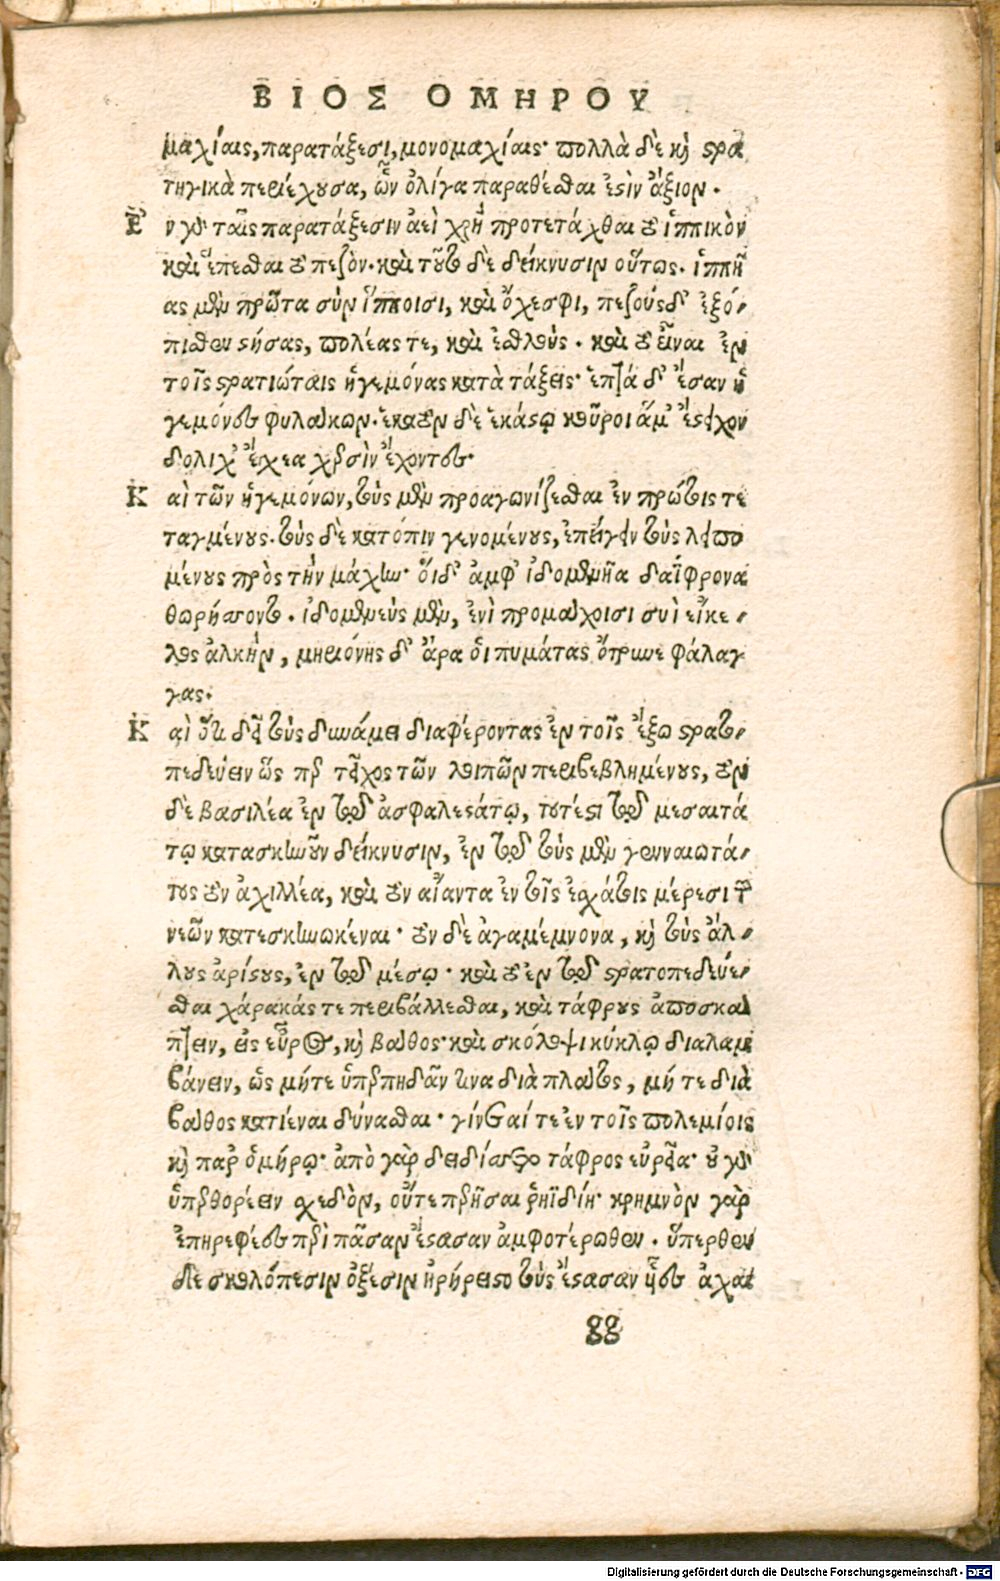 ΒΙΟΣ ΟΜΗΡΟΥ
μαχίαις, παρατάξεσι, μονομαχίαις· πολλὰ δὲ καὶ στρα
τηγικὰ περιέχουσα, ὧν ὀλίγα παραθέσθαι ἐστὶν ἄξιον.
Ἐν γὰρ ταῖς παρατάξεσιν ἀεὶ χρὴ προτετάχθαι τὸ ἱππικὸν
καὶ ἕπεσθαι τὸ πεζὸν. καὶ τοῦτο δὲ δείκνυσιν οὕτως. ἱππῆ
ας μὲν πρῶτα σὺν ἵπποισι, καὶ ὄχεσφι, πεζοὺς δ' ἐξό-
πισθεν στήσας, πολέας τε, καὶ ἐσθλούς. καὶ τὸ εἶναι ἐν
τοῖς στρατιώταις ἡγεμόνας κατὰ τάξεις· ἑπτά δ' ἔσαν ἡ
γεμόνες φυλάκων. ἑκατὸν δὲ ἑκάστῳ κοῦροι ἅμ' ἔστειχον
δολίχ' ἔγχεα χερσὶν ἔχοντες.
Καὶ τῶν ἡγεμόνων, τοὺς μὲν προαγωνίζεσθαι ἐν πρώτοις τε
ταγμένους. τοὺς δὲ κατόπιν γενομένους, ἐπείγειν τοὺς λειπο
μένους πρὸς τὴν μάχην· οἵδ' ἀμφ' ἰδομενῆα δαΐφρονα
θωρήσσοντο. ἰδομενεὺς μὲν, ἐνὶ προμάχοισι συῒ εἴκε-
λος ἀλκὴν, μηριόνης δ' ἄρα οἱ πυμάτας ὄτρυνε φάλαγ
γας.
Καὶ ὅτι δεῖ τοὺς δυνάμει διαφέροντας ἐν τοῖς ἔξω στρατο-
πεδεύειν ὡς περ τεῖχος τῶν λοιπῶν περιβεβλημένους, τὸν
δὲ βασιλέα ἐν τῷ ἀσφαλεστάτῳ, τουτέστι τῷ μεσαιτά
τῳ κατασκηνοῦν δείκνυσιν, ἐν τῷ τοὺς μὲν γενναιοτά-
τους τὸν ἀχιλλέα, καὶ τὸν αἴαντα ἐν τοῖς ἐσχάτοις μέρεσι τῶν
νεῶν κατεσκηνωκέναι· τὸν δὲ ἀγαμέμνονα, καὶ τοὺς ἄλ-
λους ἀρίστους, ἐν τῷ μέσῳ· καὶ τὸ ἐν τῷ στρατοπεδεύε-
σθαι χάρακάς τε περιβάλλεσθαι, καὶ τάφρους ἀποσκά
πτειν, εἰς εὖρος, καὶ βάθος· καὶ σκόλοψι κύκλῳ διαλαμ
βάνειν, ὡς μήτε ὑπερπηδᾶν τινα διὰ πλάτος, μή τε διὰ
βάθος κατιέναι δύνασθαι· γίνεται τε ἐν τοῖς πολεμίοις
καὶ παρ' ὁμήρῳ· ἀπὸ γὰρ δειδίσσετο τάφρος εὐρεῖα· οὐ γὰρ
ὑπερθορέειν σχεδὸν, οὔτε περῆσαι ῥηϊδίη· κρημνὸν γὰρ
ἐπηρεφέες περὶ πᾶσαν ἔστασαν ἀμφοτέρωθεν. ὕπερθεν
δὲ σκολόπεσιν ὀξέσιν ἠρήρειστο τοὺς ἔστασαν υἷες ἀχαι
gg
Digitalisierung gefördert durch die Deutsche Forschungsgemeinschaft - DFG